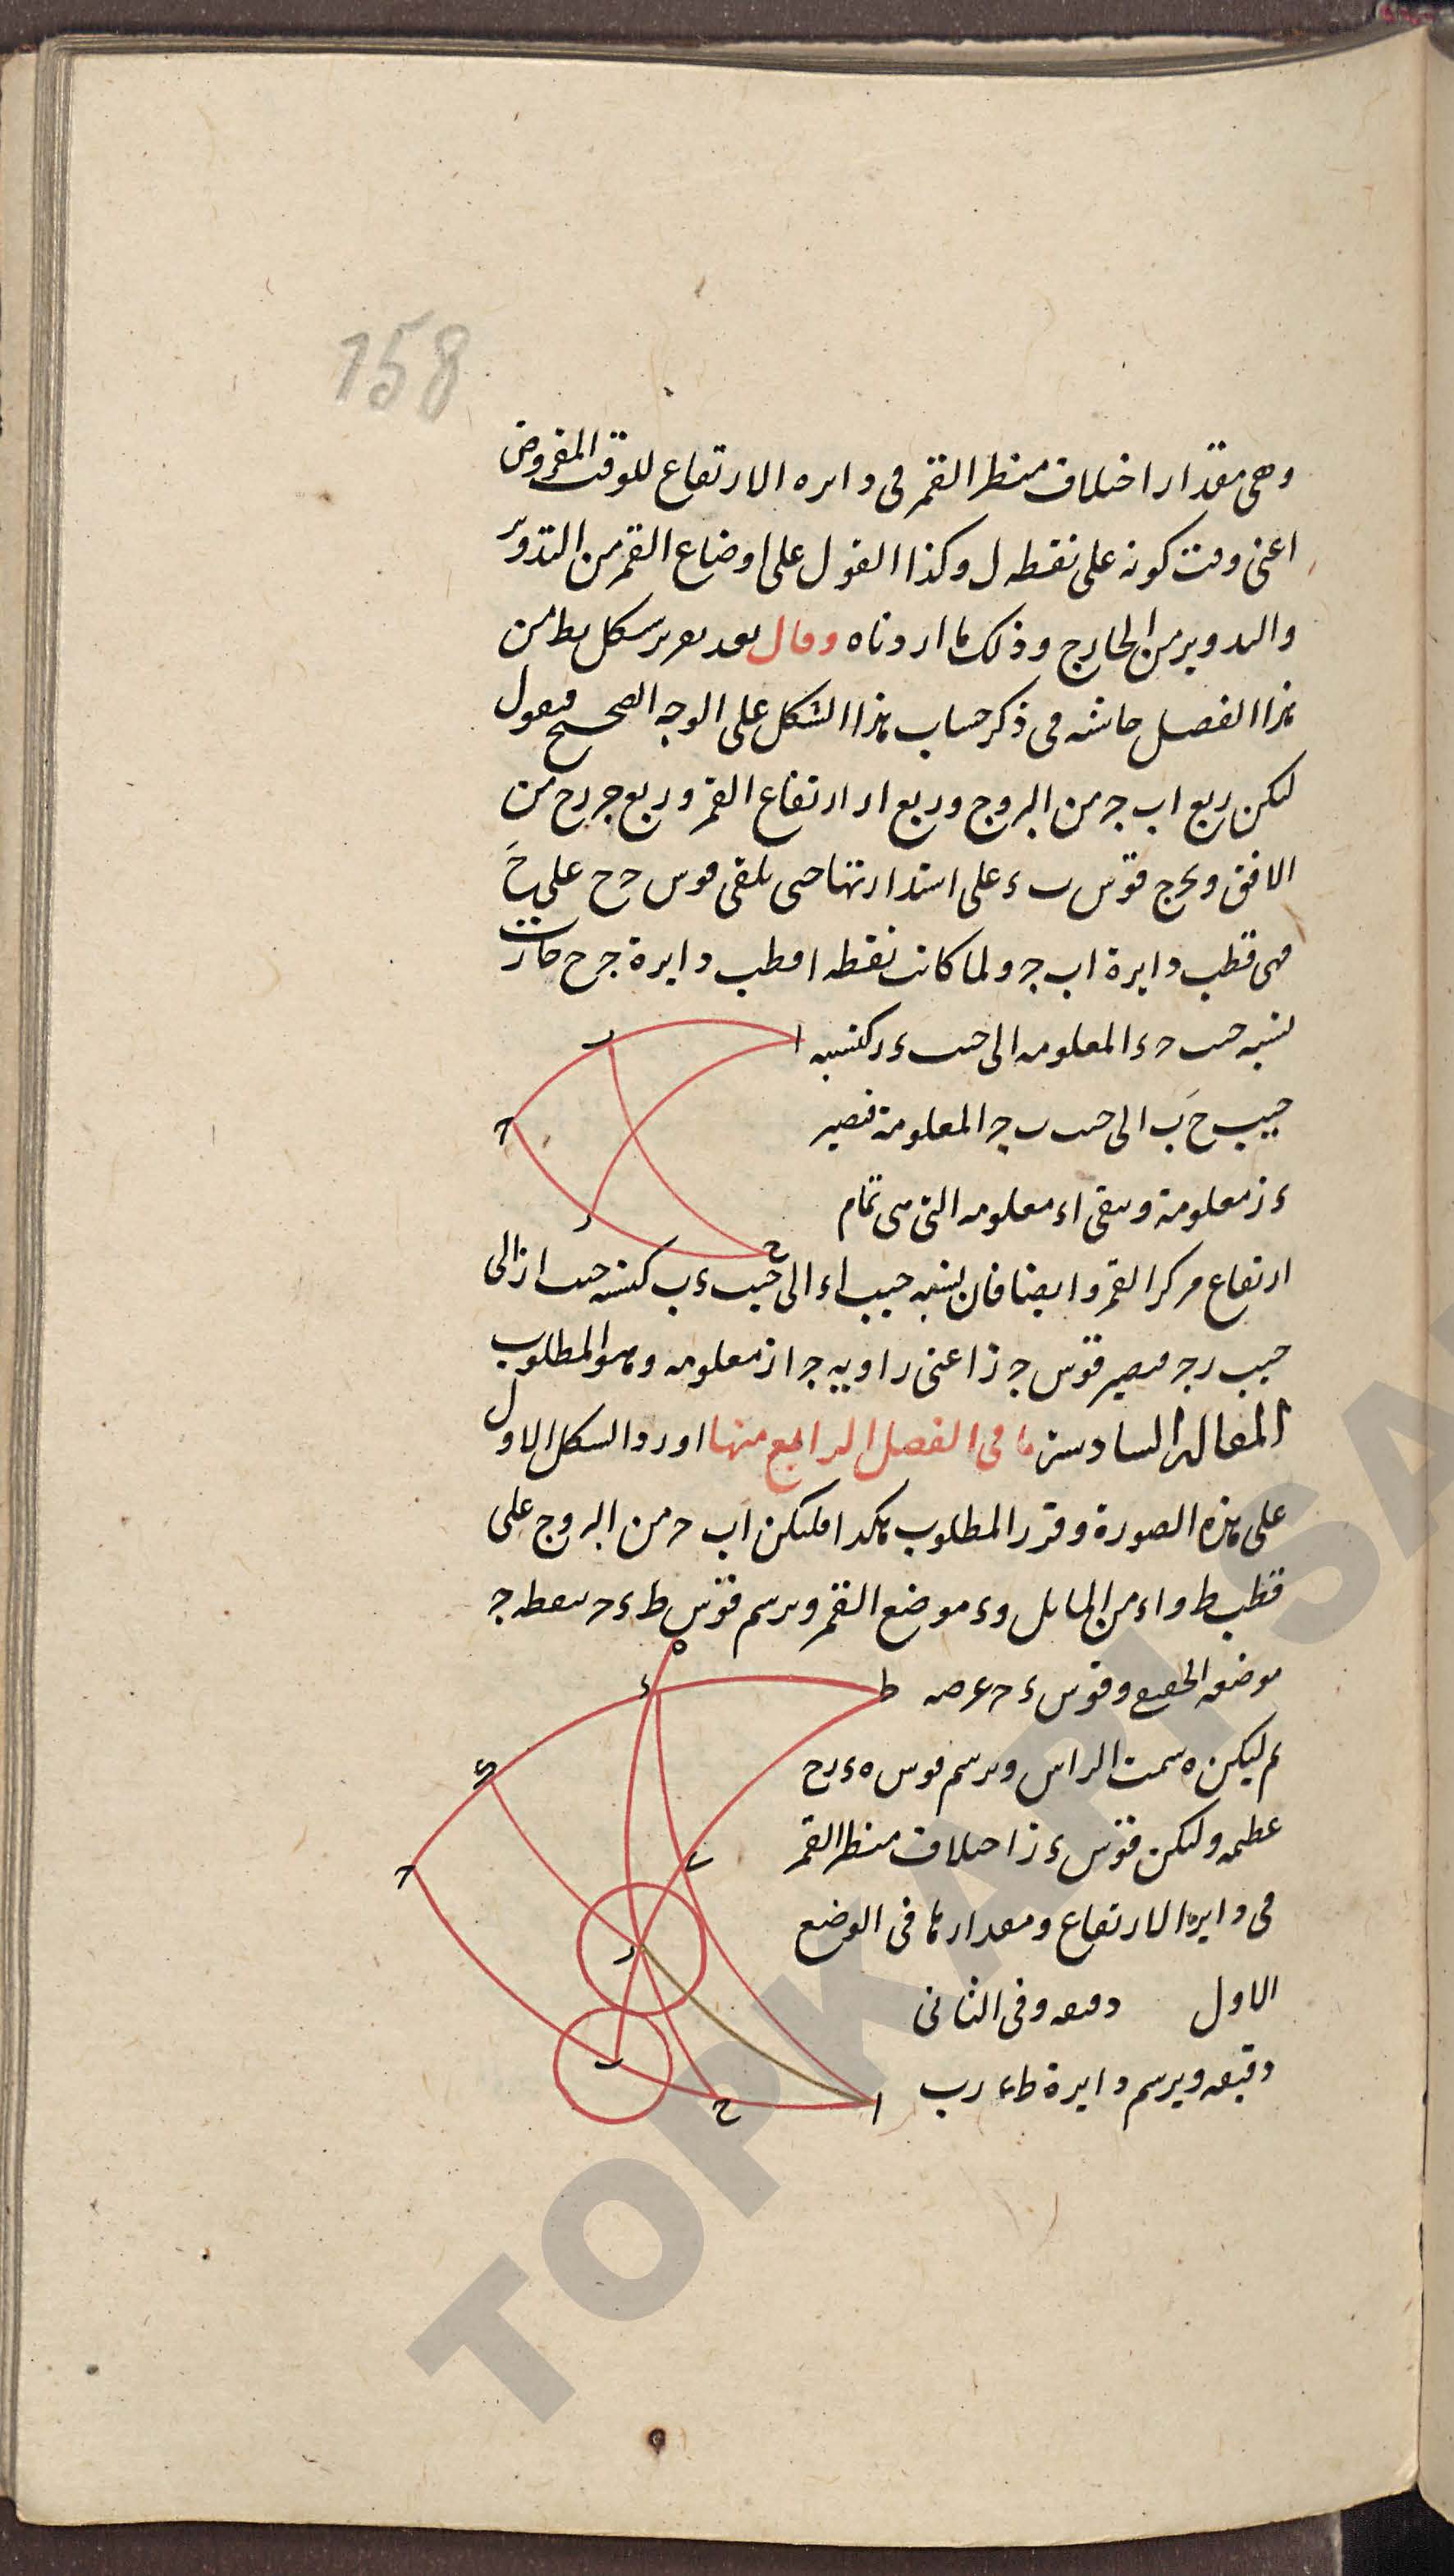 158
وهى مقدار اختلاف منظر القمر فى دايره الارتفاع للوقت المفروض
اعنى وقت كونه على نقطه ل وكذا القول على اوضاع القمر من التدوير
والتدوير من الخارج وذلك ما اردناه وقال بعد تحرير شكل يط من
هذا الفصل حاشيه فى ذكر حساب هذا الشكل على الوجه الصحيح فنقول
ليكن ربع اب جـ من البروج وربع ا ر ارتفاع القمر وربع جـ ر ح من
الافق ونخرج قوس ب ء على استدارتها حتى تلقى قوس جـ ح على ح
فهى قطب دايرة اب جـ ولما كانت نقطه ا قطب دايرة جـ ر ح صارت
نسبه جيب ح ء المعلومه الى جيب ء ر كنسبه
جيب ح ب الى جيب ب جـ المعلومة فتصير
ء ز معلومة وتبقى اء معلومه التى هى تمام
ارتفاع مركز القمر وايضا فان نسبه جيب اء الى جيب ء ب كنسبه جيب از الى
جيب ر جـ فتصير قوس جـ ز اعنى زاويه جـ ا ز معلومه وهو المطلوب
المقاله السادسة ما فى الفصل الرابع منها اورد الشكل الاول
على هذه الصورة وقرر المطلوب هكذا فليكن اب حـ من البروج على
قطب ط و اء من المايل و ء موضع القمر ونرسم قوس ط ء حـ فنقطه جـ
موضعه الحقيقى وقوس ء حـ عرضه
ثم ليكن ه سمت الراس ونرسم قوس ه ء ر ح
عظيمه وليكن قوس ء ز اختلاف منظر القمر
فى دايره الارتفاع ومقدارها فى الوضع
الاول دقيقه وفى الثانى
دقيقه ويرسم دايرة ط ء ر ب
TOPKAPI SA